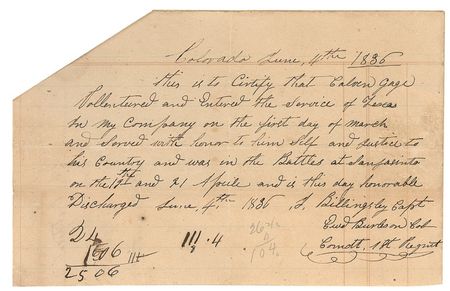 Colorado June, 4th 1836
this is to Certify that Calven Gage
Vollentured and Entered the Service of Texas
In my Company on the first day of march
and Served with honor to him Self and Justice to
his Country and was in the Battles at Sanjasinto
on the and 21 Aprile and is this day honorable
Discharged June 4th 1836 J. Billingsly Capt
Ewd Burleson Col
Comdt, 1st Regmt
24
1606
2506